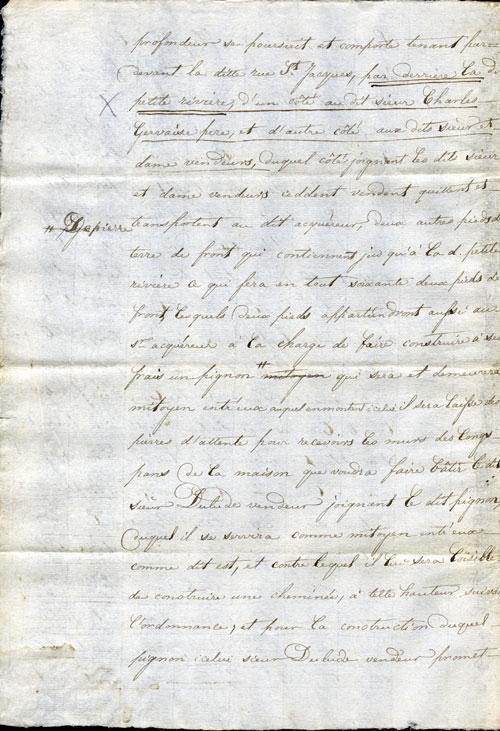 profondeur se poursuit et comporte tenant par
devant la ditte rue St. Jacques, par derriere la d
petite riviere, d'un côté au dit sieur Charles
Gervaise pere, et d'autre côté aux dits sieur et
dame vendeurs, duquel côté joignant les dits sieur
et dame vendeurs ceddent vendent quittent et
transportent au dit acquéreur, deux autres pieds de
# De pierre
terre de front qui contiennent jusqu'à la d. petite
riviere ce qui fera en tout soixante deux pieds de
front, lesquels deux pieds appartiendront aussi au
sr. acquéreur à la charge de faire construire à ses
frais un pignon # mitoyen qui sera et demeurera
mitoyen entr'eux auquel en montant icelui il sera laissé des
pierres d'attente pour recevoir les murs des longs
pans de la maison que voudra faire bâtir le dit
sieur Dulude vendeur joignant le dit pignon
duquel il se servira comme mitoyen entr'eux
comme dit est, et contre lequel il lui sera loisible
de construire une cheminée, à telle hauteur suivant
l'ordonnance, et pour la construction duquel
pignon icelui sieur Dulude vendeur promet